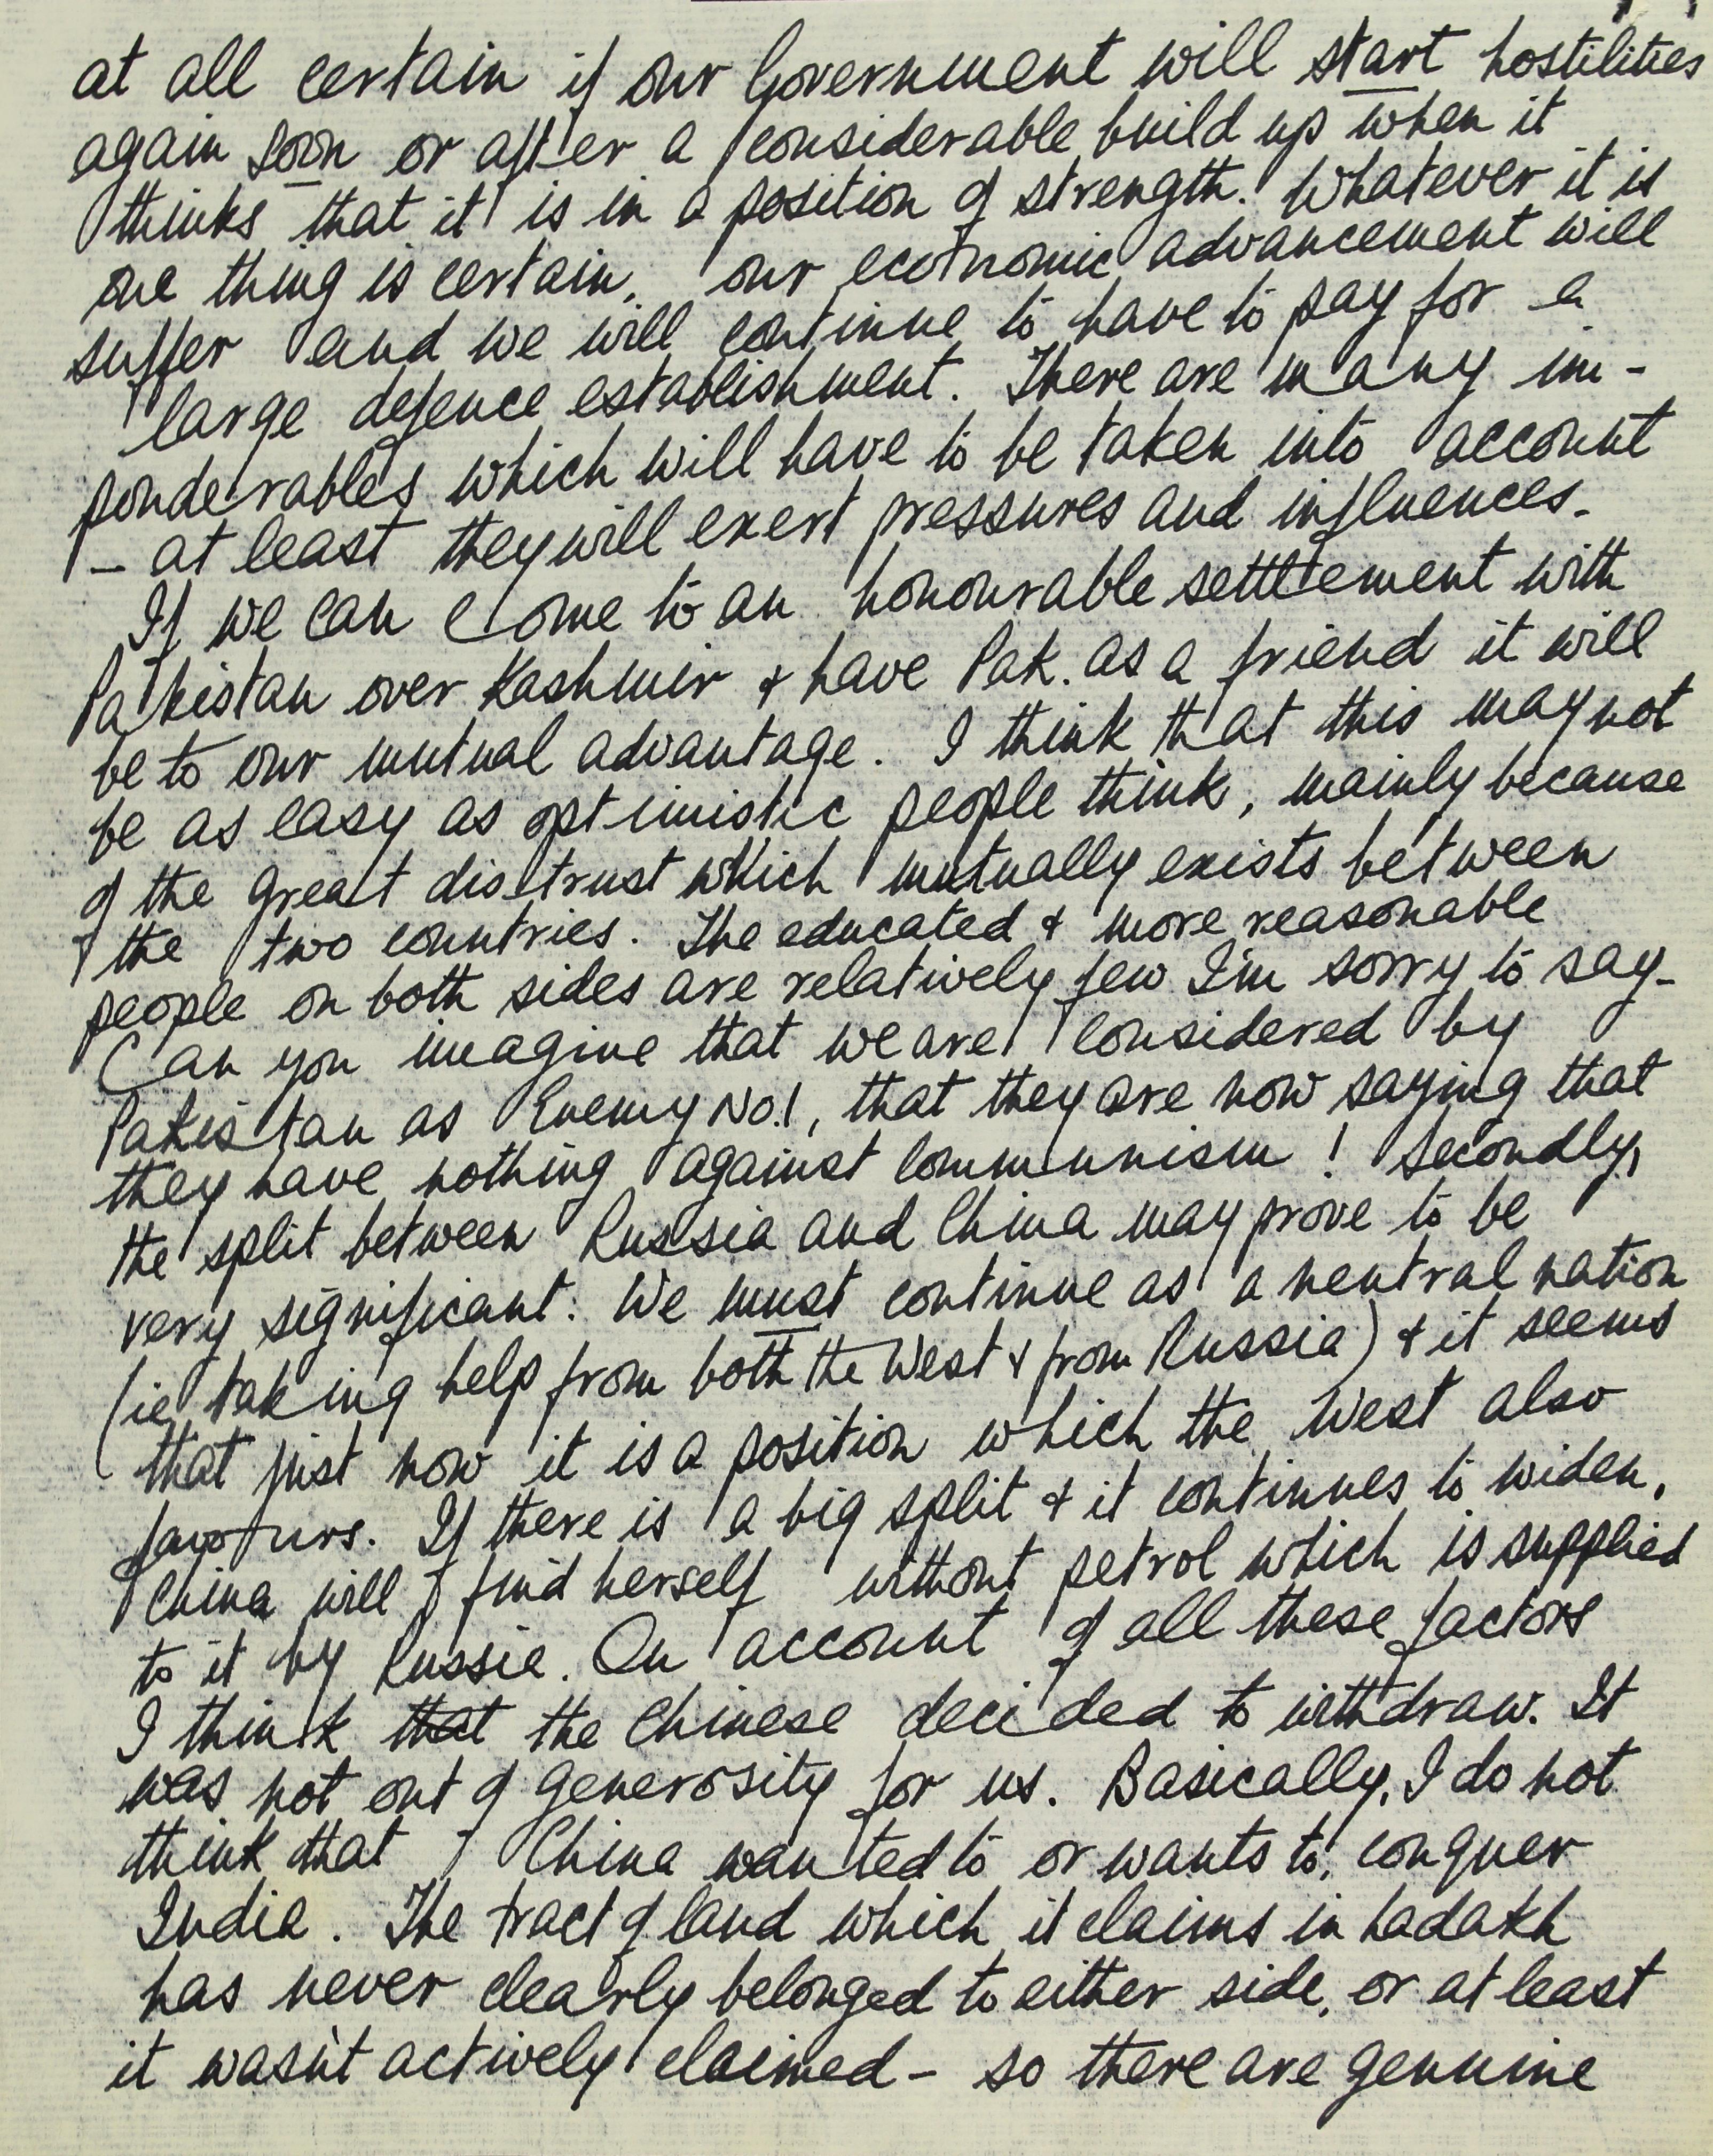 at all certain if our Government will start hostilities
again soon or after a considerable build up when it
thinks that it is in a position of strength. Whatever it is
one thing is certain, our economic advancement will
suffer and we will continue to have to pay for a
large defence establishment. There are many im-
ponderables which will have to be taken into account
- at least they will exert pressures and influences.
If we can come to an honourable settlement with
Pakistan over Kashmir & have Pak. as a friend it will
be to our mutual advantage. I think that this may not
be as easy as optimistic people think, mainly because
of the great distrust which mutually exists between
the two countries. The educated & more reasonable
people on both sides are relatively few I'm sorry to say-
Can you imagine that we are considered by
Pakistan as Enemy No.1, that they are now saying that
they have nothing against Communism! Secondly,
the split between Russia and China may prove to be
very significant. We must continue as a neutral nation
(ie taking help from both the West & from Russia) & it seems
that just now it is a position which the West also
favours. If there is a big split & it continues to widen,
China will find herself without petrol which is supplied
to it by Russia. On account of all these factors
I think that the Chinese decided to withdraw. It
was not out of generosity for us. Basically, I do not
think that China wanted to or wants to, conquer
India. The tract of land which it claims in Ladakh
has never clearly belonged to either side, or at least
it wasn't actively claimed - so there are genuine